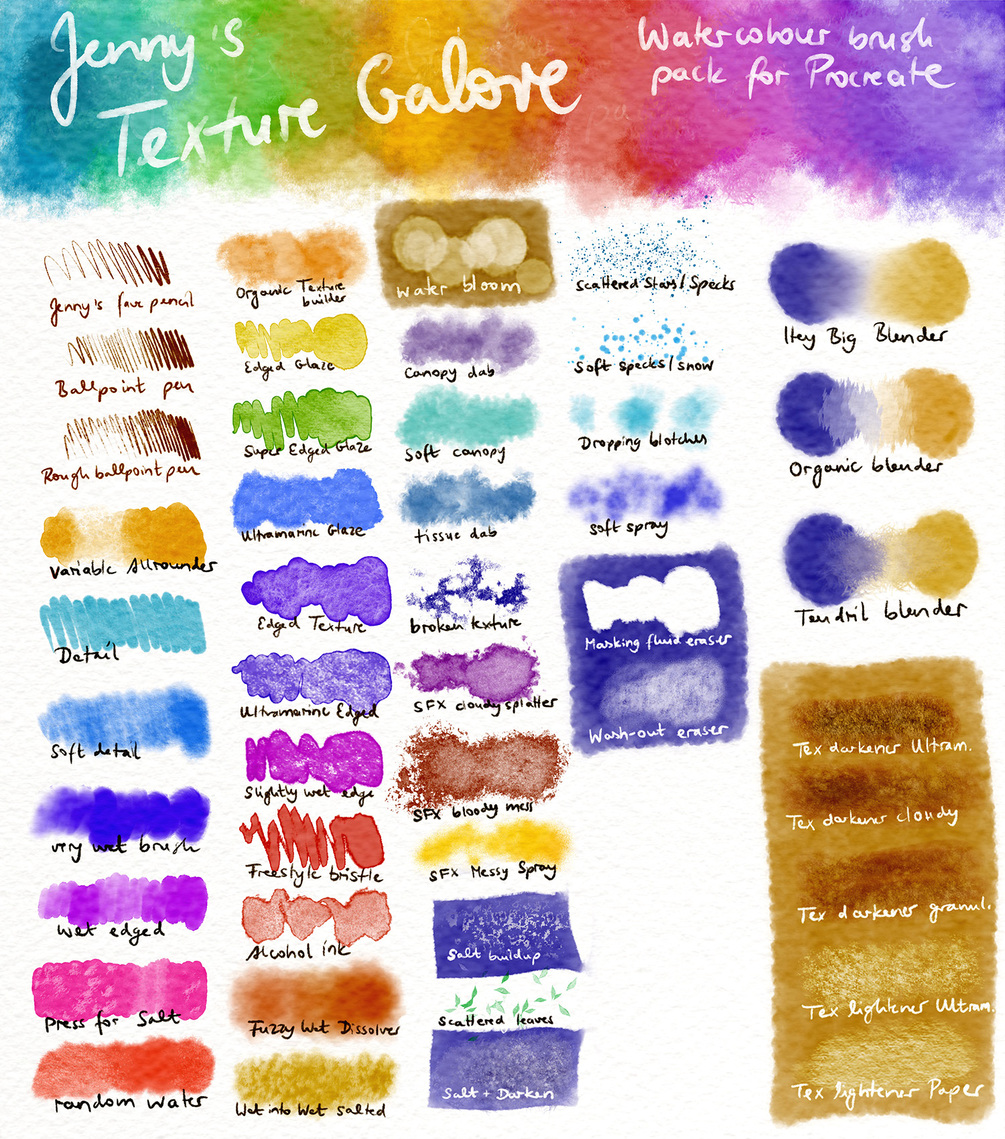 Jenny's
Texture Galore
Watercolour brush
pack for Procreate
Jenny's fave pencil
Ballpoint pen
Rough ballpoint pen
Variable Allrounder
Detail
Soft detail
very wet brush
Wet edged
Press for Salt
random water
Organic Texture
builder
Edged Glaze
Super Edged Glaze
Ultramarine Glaze
Edged Texture
Ultramarine Edged
Slightly wet edge
Freestyle bristle
Alcohol ink
Fuzzy Wet Dissolver
Wet into Wet salted
water bloom
Canopy dab
Soft canopy
tissue dab
broken texture
SFX cloudy splatter
SFX bloody mess
SFX Messy Spray
Salt buildup
Scattered leaves
Salt + Darken
Scattered Stars/Specks
Soft specks/snow
Dropping blotches
Soft spray
Masking fluid eraser
Wash-out eraser
Hey Big Blender
Organic blender
Tendril blender
Tex darkener Ultram.
Tex darkener cloudy
Tex darkener granul.
Tex lightener Ultram.
Tex lightener Paper